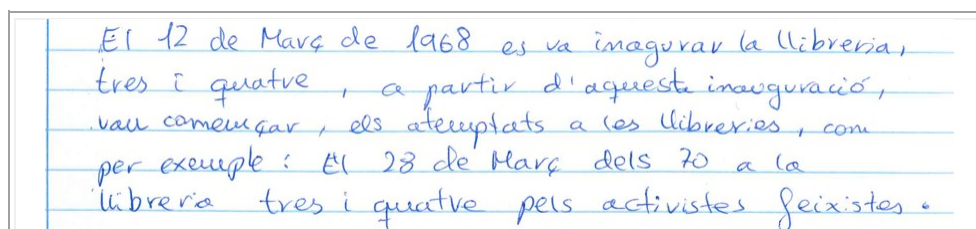 El 12 de Març de 1968 es va inagurar la llibreria,
tres i quatre, a partir d'aquesta inauguració,
van començar, els atemptats a les llibreries, com
per exemple: El 28 de Març dels 70 a la
llibreria tres i quatre pels activistes feixistes.